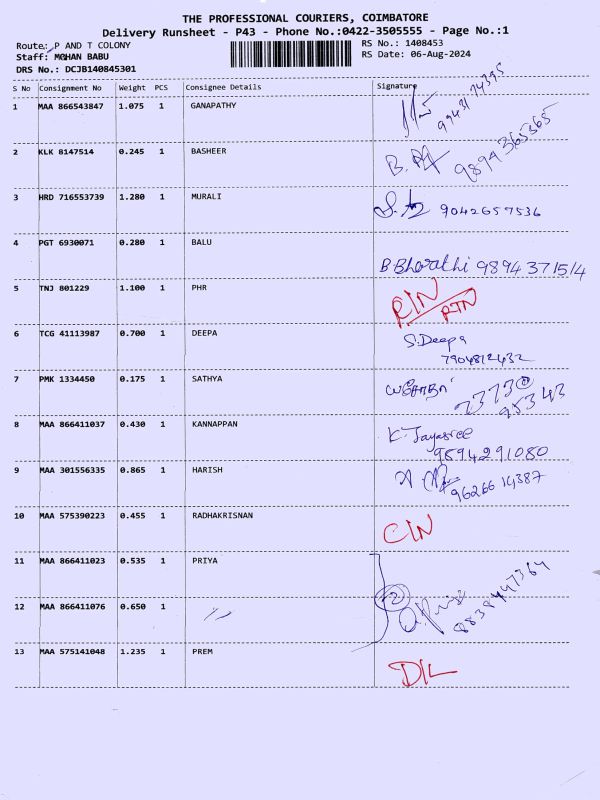 THE PROFESSIONAL COURIERS, COIMBATORE
Delivery Runsheet - P43 - Phone No.:0422-3505555 - Page No.:1
Route: P AND T COLONY
RS No.: 1408453
Staff: MOHAN BABU
RS Date: 06-Aug-2024
DRS No.: DCJB140845301
S No Consignment No Weight PCS Consignee Details Signature
1 MAA 866543847 1.075 1 GANAPATHY
2 KLK 8147514 0.245 1 BASHEER 9894365365
3 HRD 716553739 1.280 1 MURALI 9042657536
4 PGT 6930071 0.280 1 BALU B Bharathi 9894371514
5 TNJ 801229 1.100 1 PHR RTN
6 TCG 41113987 0.700 1 DEEPA S.Deepa
7904812432
7 PMK 1334450 0.175 1 SATHYA
8 MAA 866411037 0.430 1 KANNAPPAN K Jayasree
9894291080
9 MAA 301556335 0.865 1 HARISH
9626614387
10 MAA 575390223 0.455 1 RADHAKRISNAN CIN
11 MAA 866411023 0.535 1 PRIYA
12 MAA 866411076 0.650 1 2 8838447364
13 MAA 575141048 1.235 1 PREM D/L